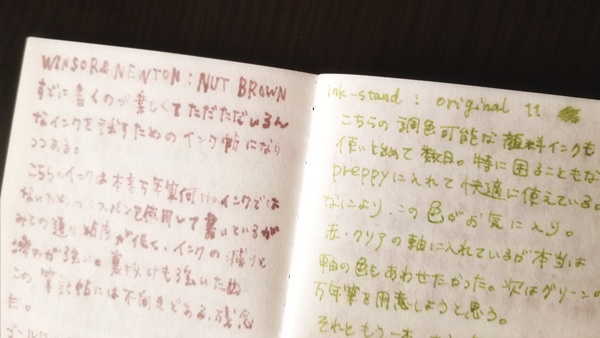 WINSOR & NEWTON : NUT BROWN
すでに書くのが楽しくてただただいろん
なインクを試すためのインク帖になり
つつある。
こちらのインクは本来万年筆向けのインクでは
ないため、ガラスペンを使用して書いているが
みての通り粘度が低く、インクの減りと
滲みが強い。裏抜けも強いため
この筆記帖には不向きである。残念
だ。
ink-stand : original 11
こちらの調色可能な顔料インクも
使い始めて数日。特に困ることもな
preppyに入れて快適に使えている。
なにより、この色がお気に入り。
赤・クリアの軸に入れているが本当は
軸の色をあわせたかった。次はグリーンの
万年筆を用意しようと思う。
それともう一本